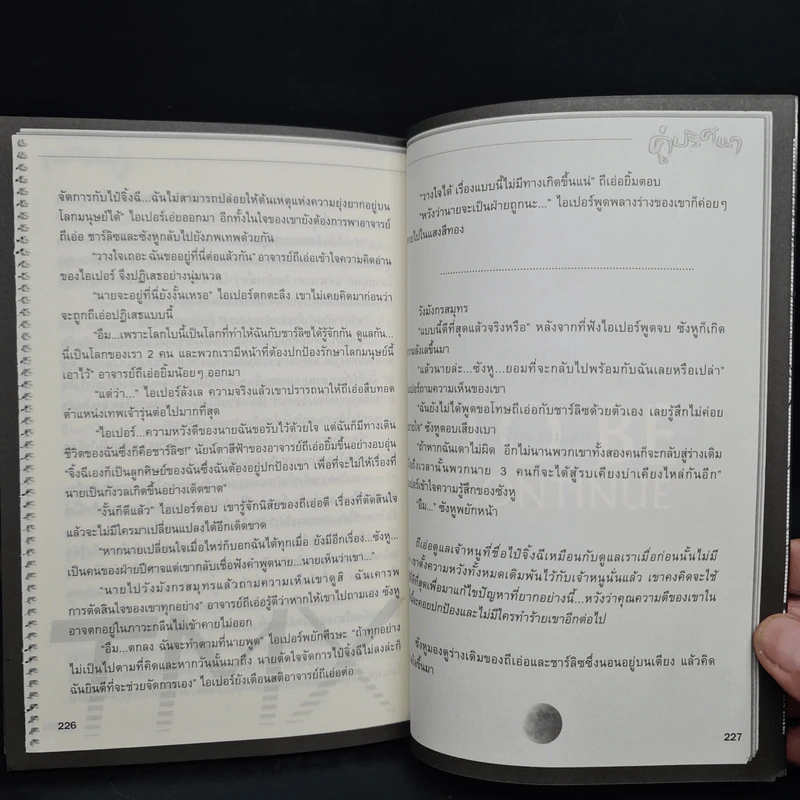 จัดการกับไป๋จิ้งฉี...ฉันไม่สามารถปล่อยให้ต้นเหตุแห่งความยุ่งยากอยู่บน
โลกมนุษย์ได้" ไอเปอร์เอ่ยออกมา อีกทั้งในใจของเขายังต้องการพาอาจารย์
ถีเอ่อ ชาร์ลิซและซังหูกลับไปยังภพเทพด้วยกัน
"วางใจเถอะ ฉันขออยู่ที่นี่ต่อแล้วกัน" อาจารย์ถีเอ่อเข้าใจความคิดอ่าน
ของไอเปอร์ จึงปฏิเสธอย่างนุ่มนวล
"นายจะอยู่ที่นี่ยังงั้นเหรอ" ไอเปอร์ตกตะลึง เขาไม่เคยคิดมาก่อนว่า
จะถูกถีเอ่อปฏิเสธแบบนี้
"อืม...เพราะโลกใบนี้เป็นโลกที่ทำให้ฉันกับชาร์ลิซได้รู้จักกัน ดูแลกัน...
นี่เป็นโลกของเรา 2 คน และพวกเรามีหน้าที่ต้องปกป้องรักษาโลกมนุษย์นี้
เอาไว้" อาจารย์ถีเอ่อยิ้มน้อยๆ ออกมา
"แต่ว่า..." ไอเปอร์ลังเล ความจริงแล้วเขาปรารถนาให้ถีเอ่อสืบทอด
ตำแหน่งเทพเจ้ารุ่นต่อไปมากที่สุด
"ไอเปอร์...ความหวังดีของนายฉันขอรับไว้ด้วยใจ แต่ฉันก็มีทางเดิน
ชีวิตของฉันซึ่งก็คือชาร์ลิซ!" นัยน์ตาสีฟ้าของอาจารย์ถีเอ่อยิ้มขึ้นอย่างอบอุ่น
"จิ้งฉีเองก็เป็นลูกศิษย์ของฉันซึ่งฉันต้องอยู่ปกป้องเขา เพื่อที่จะไม่ให้เรื่องที่
นายเป็นกังวลเกิดขึ้นอย่างเด็ดขาด"
"งั้นก็ดีแล้ว" ไอเปอร์ตอบ เขารู้จักนิสัยของถีเอ่อดี เรื่องที่ตัดสินใจ
แล้วจะไม่มีใครมาเปลี่ยนแปลงได้อีกเด็ดขาด
"หากนายเปลี่ยนใจเมื่อไหร่ก็บอกฉันได้ทุกเมื่อ ยังมีอีกเรื่อง...ซังหู...
เป็นคนของฝ่ายปีศาจแต่เขากลับเชื่อฟังคำพูดนาย...นายเห็นว่าเขา..."
"นายไปวังมังกรสมุทรแล้วถามความเห็นเขาดูสิ ฉันเคารพ
การตัดสินใจของเขาทุกอย่าง" อาจารย์ถีเอ่อรู้ดีว่าหากให้เขาไปถามเอง ซังหู
อาจตกอยู่ในภาวะกลืนไม่เข้าคายไม่ออก
"อืม...ตกลง ฉันจะทำตามที่นายพูด" ไอเปอร์พยักศีรษะ "ถ้าทุกอย่าง
ไม่เป็นไปตามที่คิดและหากวันนั้นมาถึง นายตัดใจจัดการไป๋จิ้งฉีไม่ลงล่ะก็
ฉันยินดีที่จะช่วยจัดการเอง" ไอเปอร์ยังเตือนสติอาจารย์ถีเอ่อต่อ
226
คู่ปริศนา
"วางใจได้ เรื่องแบบนี้ไม่มีทางเกิดขึ้นแน่" ถีเอ่อยิ้มตอบ
"หวังว่านายจะเป็นฝ่ายถูกนะ..." ไอเปอร์พูดพลางร่างของเขาก็ค่อยๆ
หายไปในแสงสีทอง
วังมังกรสมุทร
"แบบนี้ดีที่สุดแล้วจริงหรือ" หลังจากที่ฟังไอเปอร์พูดจบ ซังหูก็เกิด
ความลังเลขึ้นมา
"แล้วนายล่ะ...ซังหู...ยอมที่จะกลับไปพร้อมกับฉันเลยหรือเปล่า"
ไอเปอร์ถามความเห็นของเขา
"ฉันยังไม่ได้พูดขอโทษถีเอ่อกับชาร์ลิซด้วยตัวเอง เลยรู้สึกไม่ค่อย
สบายใจ" ซังหูตอบเสียงเบา
"ถ้าหากฉันเดาไม่ผิด อีกไม่นานพวกเขาทั้งสองคนก็จะกลับสู่ร่างเดิม
ถึงเวลานั้นพวกนาย 3 คนก็จะได้สู้รบเคียงบ่าเคียงไหล่กันอีก"
ไอเปอร์เข้าใจความรู้สึกของซังหู
"อืม..." ซังหูพยักหน้า
TO BE
CONTINUE
ถีเอ่อดูแลเจ้าหนูที่ชื่อไป๋จิ้งฉีเหมือนกับดูแลเราเมื่อก่อนนั้นไม่มี
เขาตั้งความหวังทั้งหมดเดิมพันไว้กับเจ้าหนูนั่นแล้ว เขาคงคิดจะใช้
ที่สุดเพื่อมาแก้ไขปัญหาที่ยากอย่างนี้...หวังว่าคุณความดีของเขาใน
จะคอยปกป้องและไม่มีใครทำร้ายเขาอีกต่อไป
ซังหูมองดูร่างเดิมของถีเอ่อและชาร์ลิซซึ่งนอนอยู่บนเตียง แล้วคิด
ขึ้นมา
227